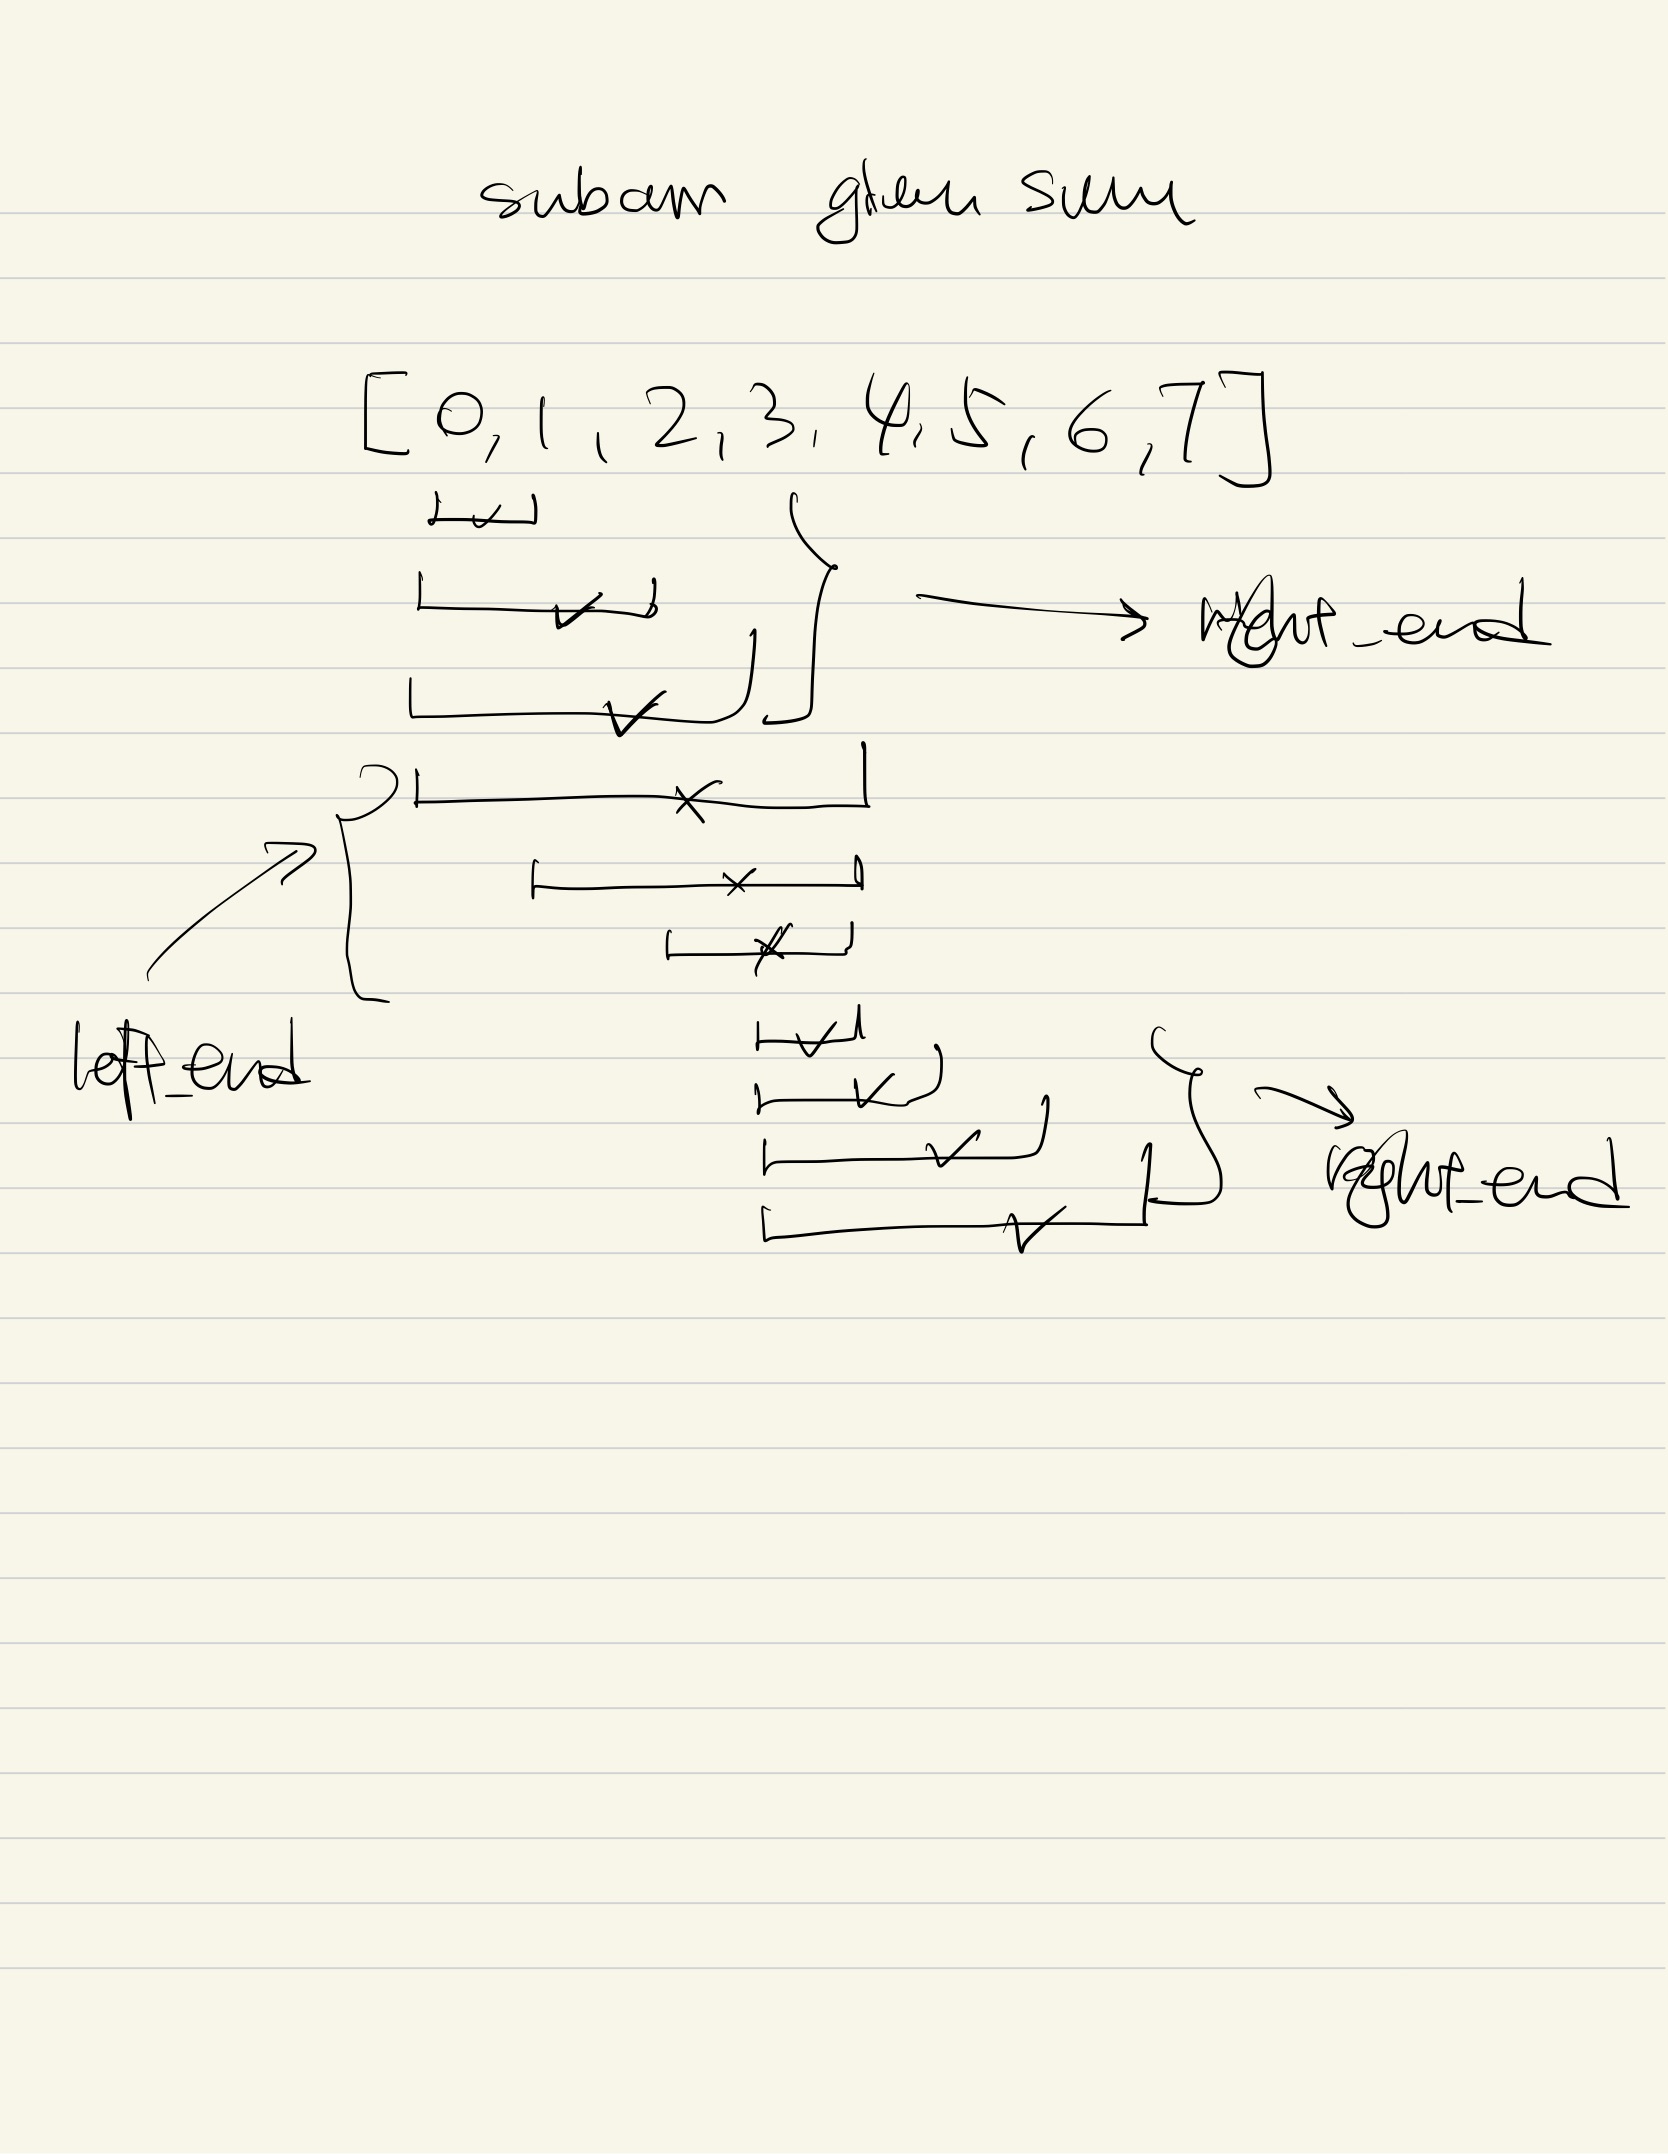 subarr given sum
[0, 1, 2, 3, 4, 5, 6, 7]
right_end
left_end
right_end